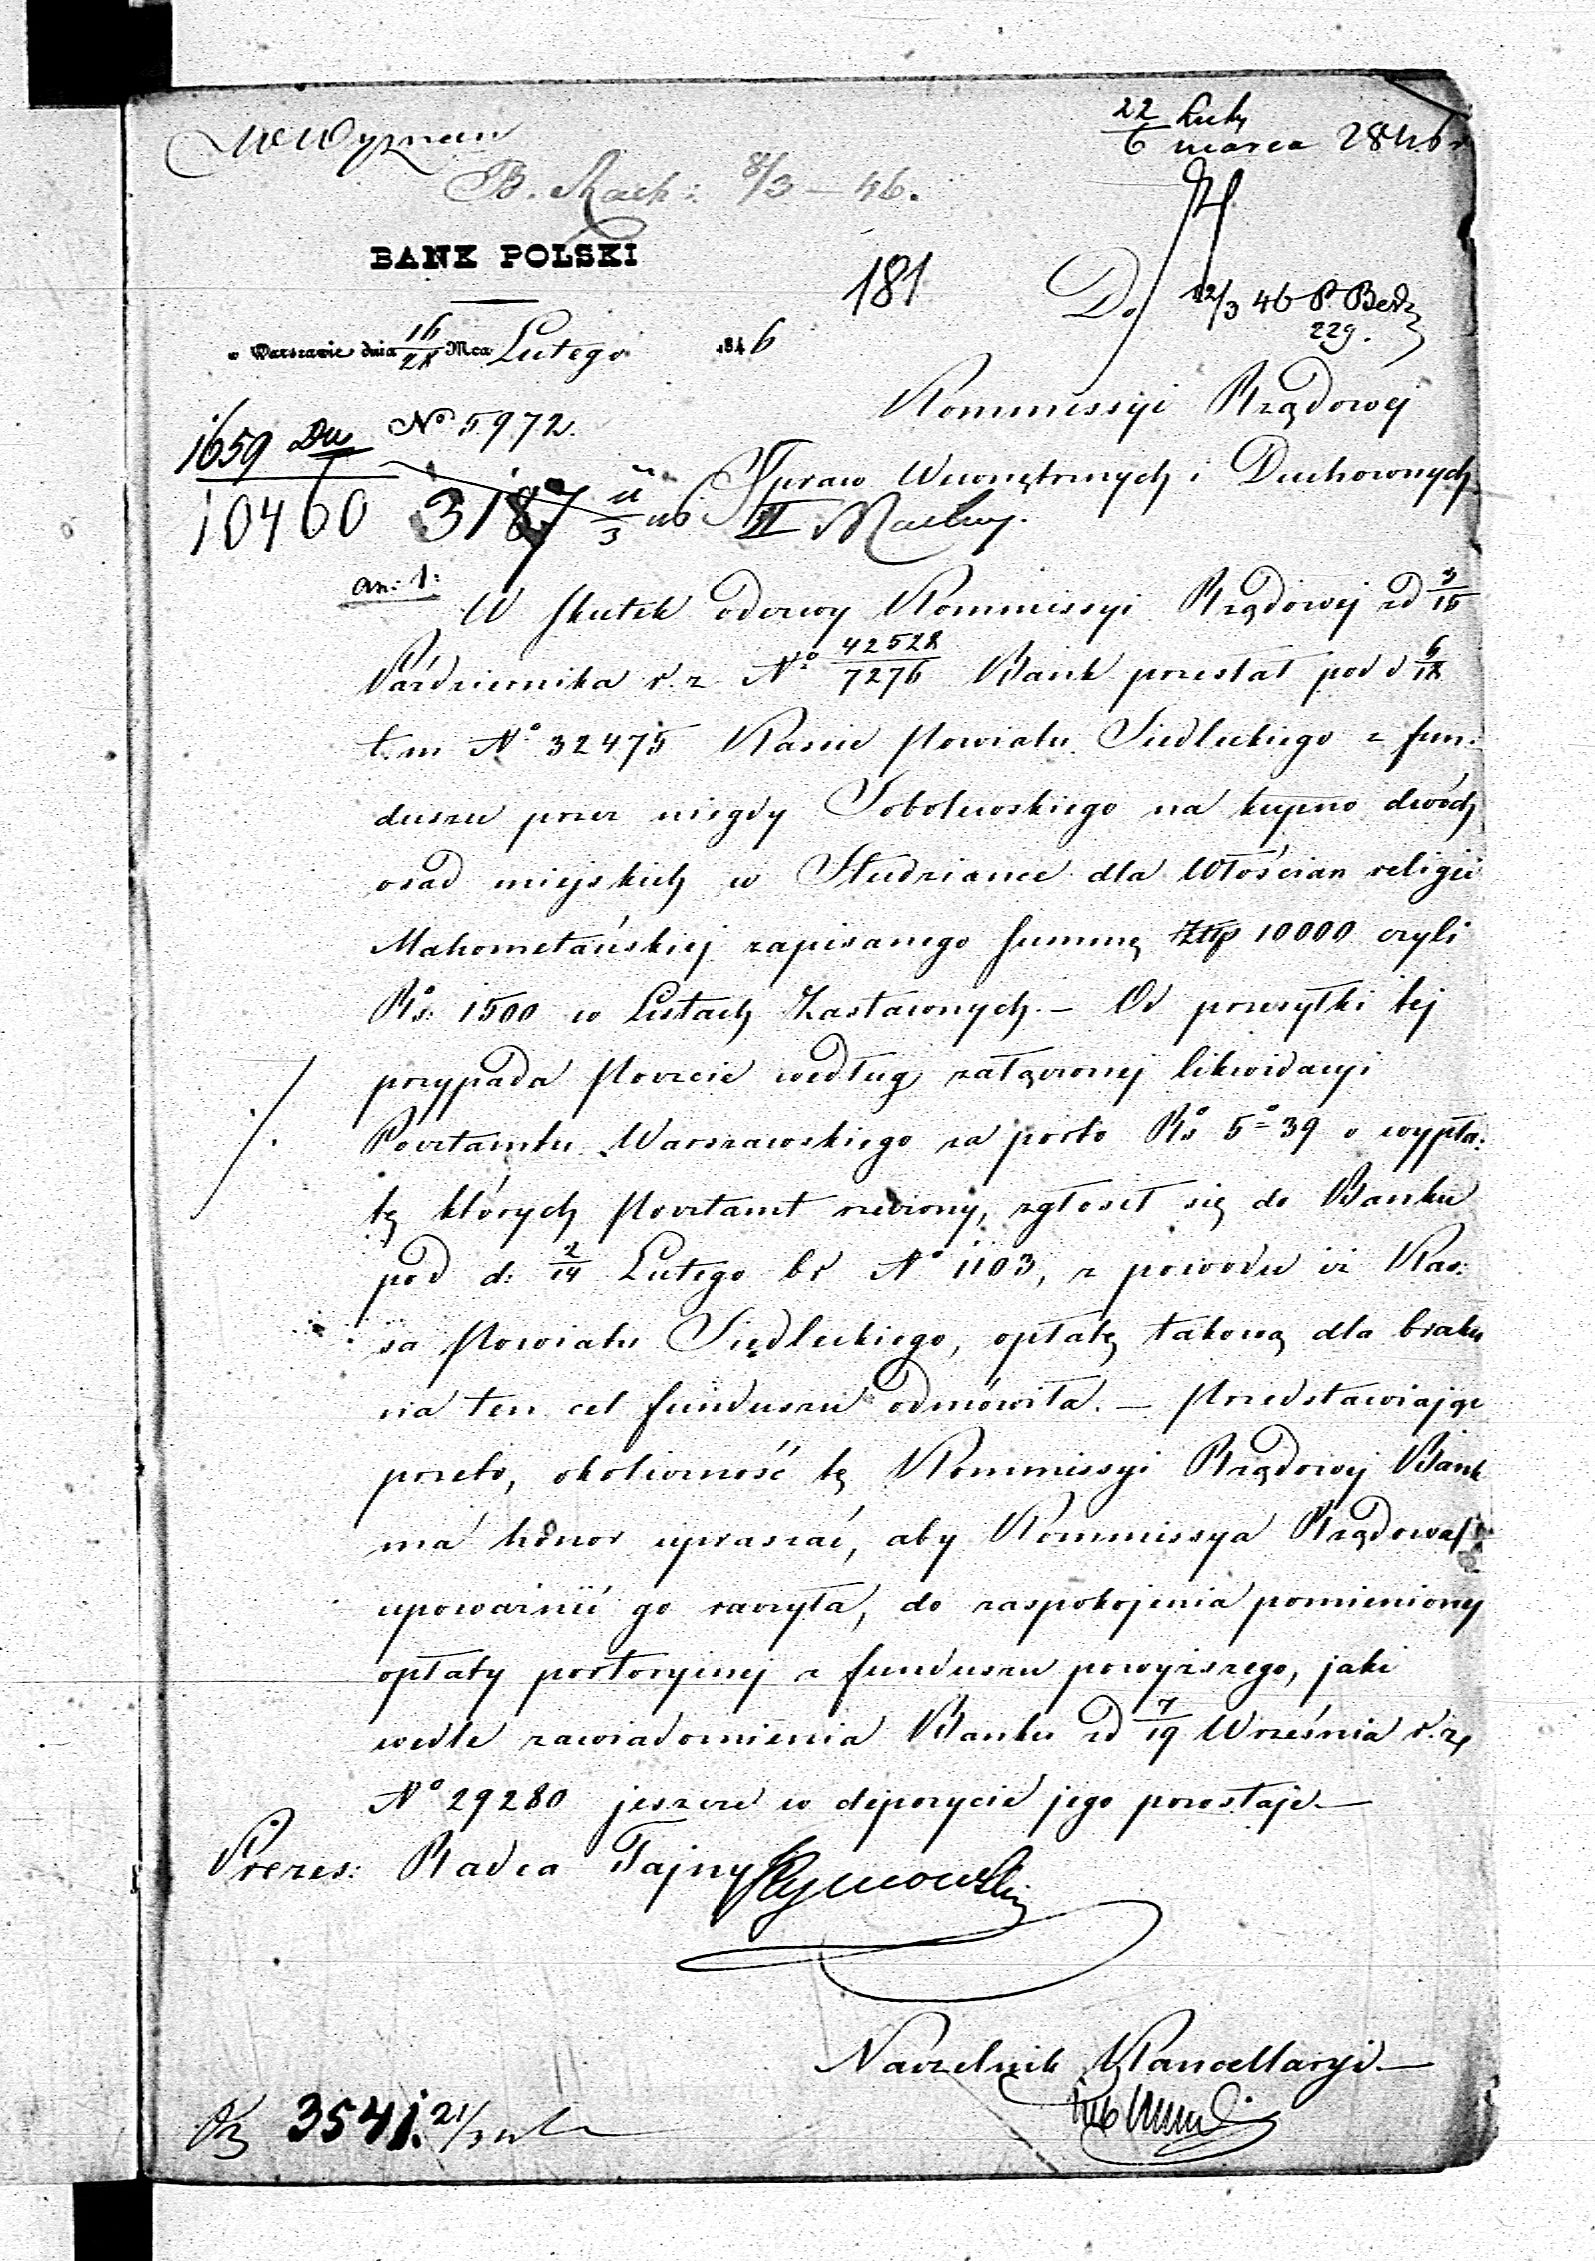 W Wyznań
22 Lutº
6 marca 1846 r
B. Rach: 8/3 – 46.
BANK POLSKI
181
Do
12/3 46 P. Berz
229.
w Warszawie dnia 16/28 Mca Lutego 1846
Kommissyi Rządowéj
Nº 5972.
1659 Du
10460
3187 11/3 46
Spraw Wewnętrznych i Duchownych
an: 1:
W skutek odezwy Kommissyi Rządowej z d 3/15
Października r. z Nº 42528/7276 Bank przesłał pod d 6/18
t. m Nº 32475 Kassie Powiatu Siedleckiego z fun:
duszu przez niegdy Sobolewskiego na kupno dwóch
osad miejskich w Studziance dla Włościan religii
Mahometańskiej zapisanego summę Złtp 10000 czyli
Rs. 1500 w Listach Zastawnych. – Od przesyłki tej
przypada Poczcie według załączonej likwidacyi
Pocztamtu Warszawskiego za porto Rs 5 = 39 o wypła:
tę których Pocztamt rzeczony, zgłosił się do Banku
pod d: 2/14 Lutego br Nº 1103, z powodu iż Kas:
sa Powiatu Siedleckiego, opłatę takową dla braku
na ten cel funduszu odmówiła. – Przedstawiając
przeto, okoliczność tę Kommissyi Rządowej Bank
ma honor upraszać, aby Kommissya Rządowa
upoważnić go raczyła, do zaspokojenia pomienionej
opłaty portoryjnej z funduszu powyższego, jaki
wedle zawiadomienia Banku z d 7/19 Września r. z,
Nº 29280 jeszcze w depozycie jego pozostaje. –
Prezes: Radca Tajny Tymowski
Naczelnik Kancellaryi –
3541. 21/3